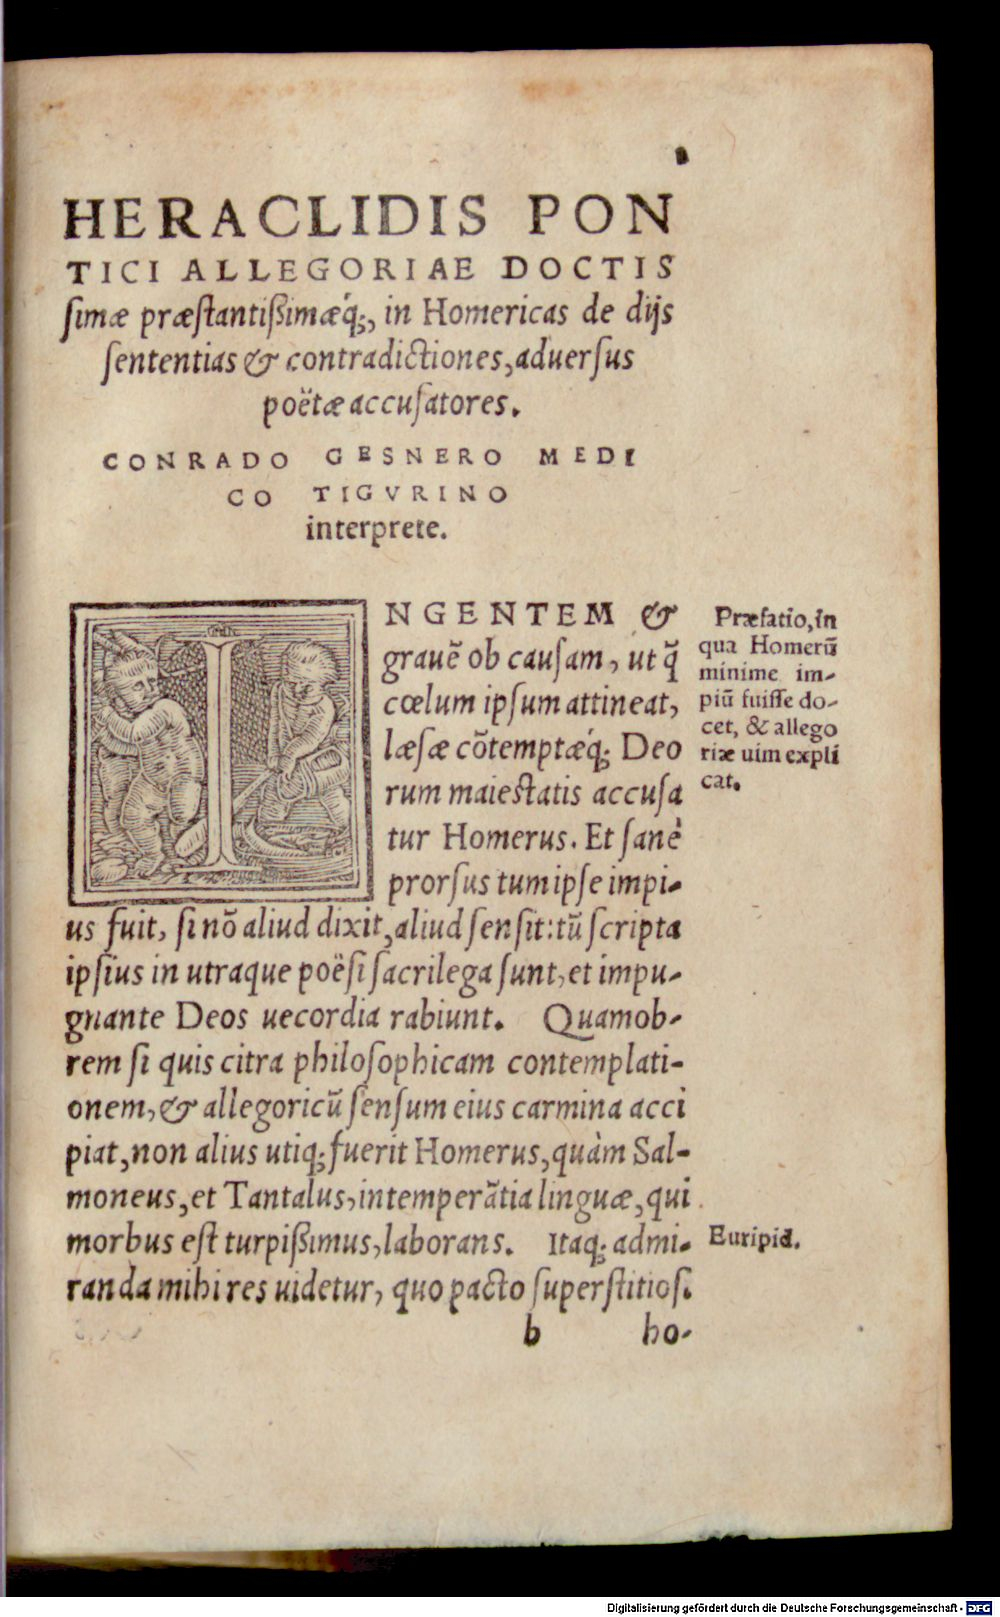 HERACLIDIS PON
TICI ALLEGORIAE DOCTIS
simæ præstantißimæq́;, in Homericas de dijs
sententias & contradictiones, aduersus
poëtæ accusatores.
CONRADO GESNERO MEDI
CO TIGVRINO
interprete.
INGENTEM &
grauẽ ob causam, ut q̃
cœlum ipsum attineat,
læsæ cõtemptæq́; Deo
rum maiestatis accusa
tur Homerus. Et sanè
prorsus tum ipse impi-
us fuit, si nõ aliud dixit, aliud sensit: tũ scripta
ipsius in utraque poësi sacrilega sunt, et impu-
gnante Deos uecordia rabiunt. Quamob-
rem si quis citra philosophicam contemplati-
onem, & allegoricũ sensum eius carmina acci
piat, non alius utiq; fuerit Homerus, quàm Sal-
moneus, et Tantalus, intemperãtia linguæ, qui
morbus est turpißimus, laborans. Itaq; admi-
randa mihi res uidetur, quo pacto superstitios.
b ho-
Præfatio, in
qua Homerũ
minime im-
piũ fuisse do-
cet, & allego
riæ uim expli
cat.
Euripid.
Digitalisierung gefördert durch die Deutsche Forschungsgemeinschaft - DFG